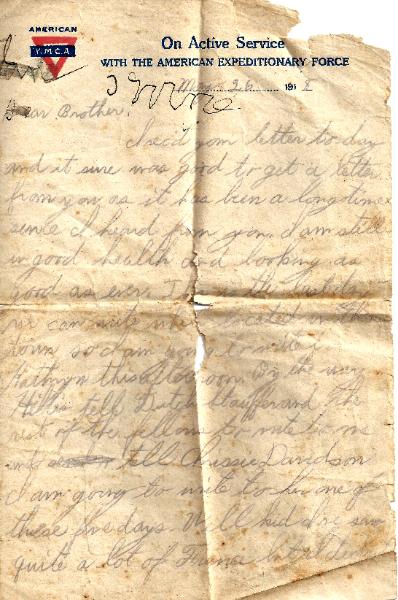 AMERICAN
Y.M.C.A
On Active Service
WITH THE AMERICAN EXPEDITIONARY FORCE
26 191
Dear Brother,
I read your letter to day
and it sure was good to get a letter
from you as it has been a long time
since I heard from you. I am still
in good health and looking as
good as ever. the
we can write
town, so I am going to write
Kathryn this afternoon. By the way
tell Dutch Stauffer and the
rest of the fellows to write to me
and tell Chussie Davidson
I am going to write to her one of
these fine days. Well kid I've saw
quite a lot of France but it